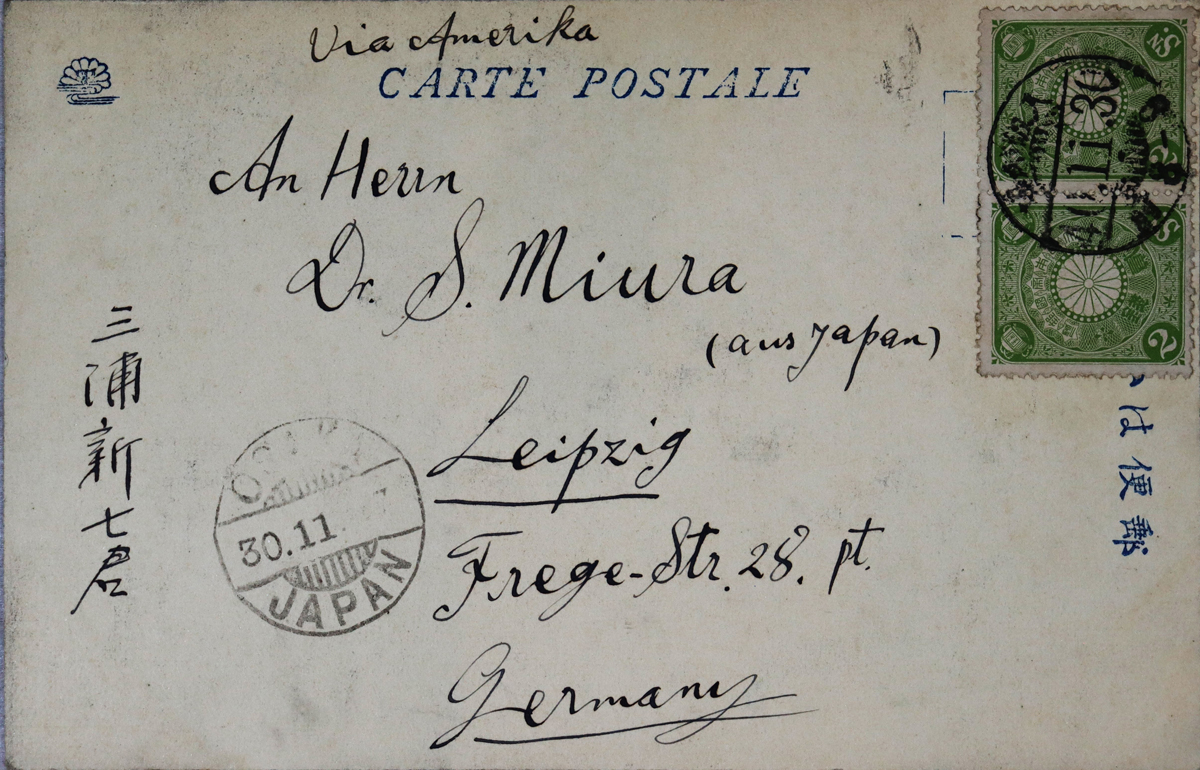 Via Amerika
CARTE POSTALE
An Herrn
Dr. S. Miura
(aus Japan)
Leipzig
Frege-Str. 28. pt.
Germany
三浦新七君
30.11
JAPAN
11.30
2
Sn.
2
は便郵